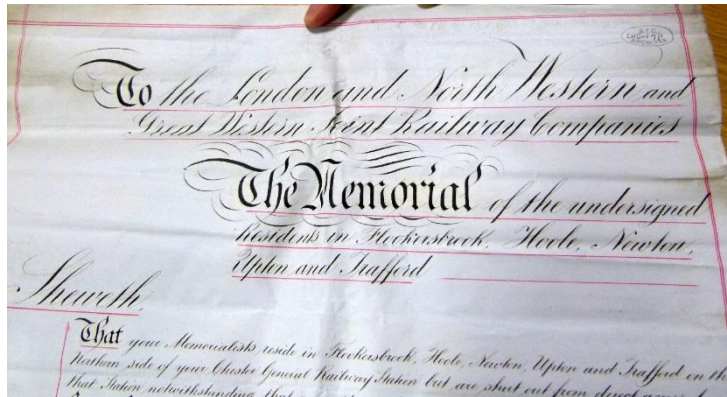 To the London and North Western and
Great Western Joint Railway Companies
The Memorial of the undersigned
Residents in Flookersbrook, Hoole, Newton,
Upton and Trafford
Sheweth,
That your Memorialists reside in Flookersbrook, Hoole, Newton, Upton and Trafford on the
Northern side of your Chester General Railway Station but are shut out from direct access
that Station notwithstanding that